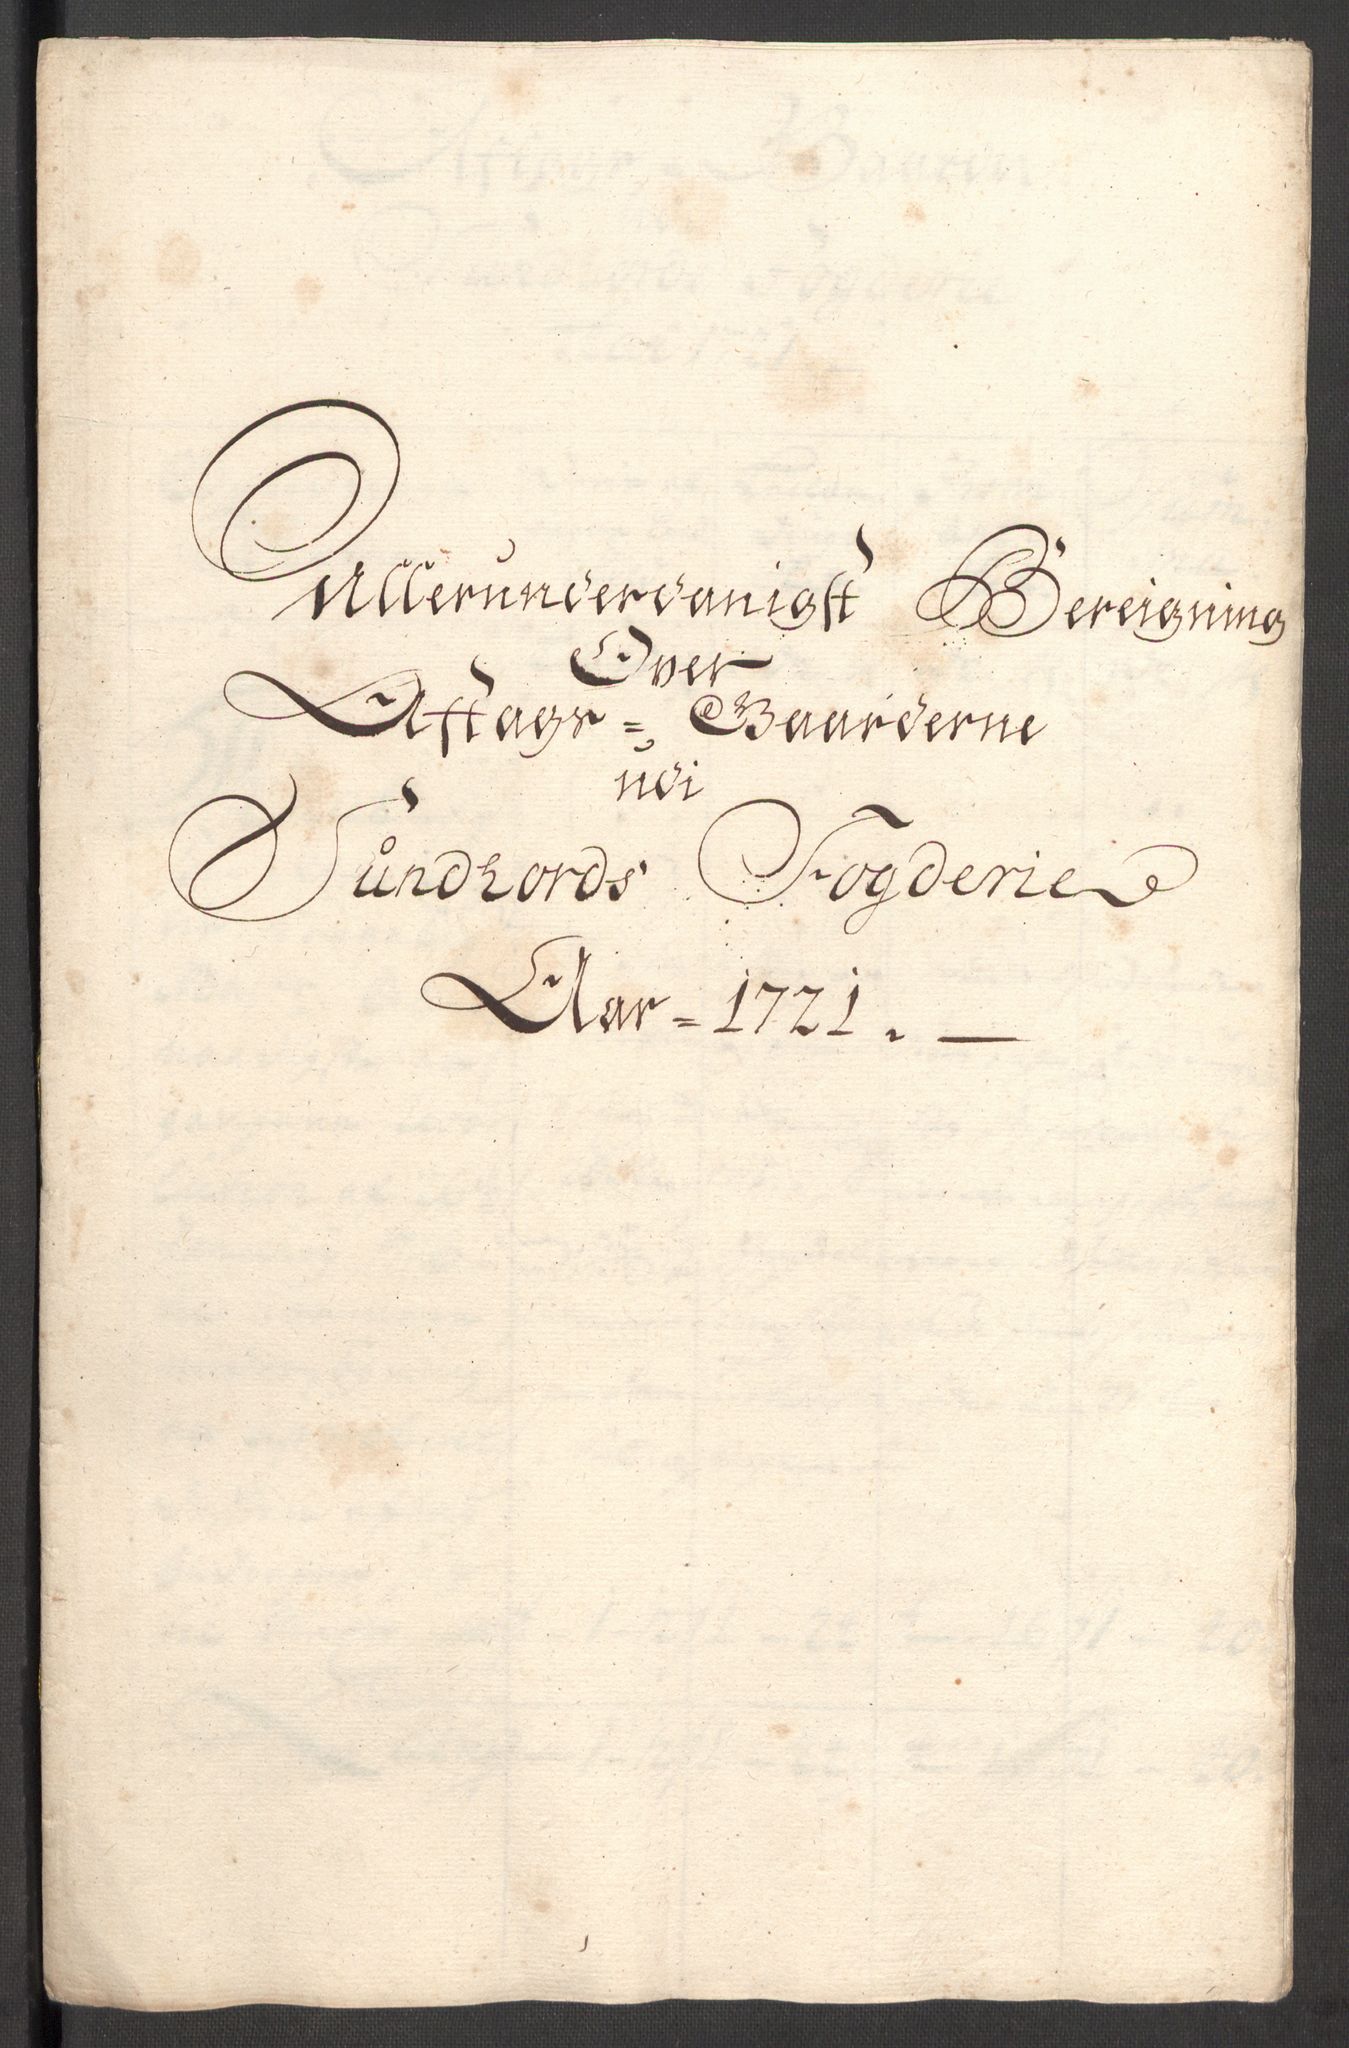 Allerunderdanigst Bereigning
Over
Aftags= Gaarderne
udi
Sundhords Fogderie
Aar = 1721. —